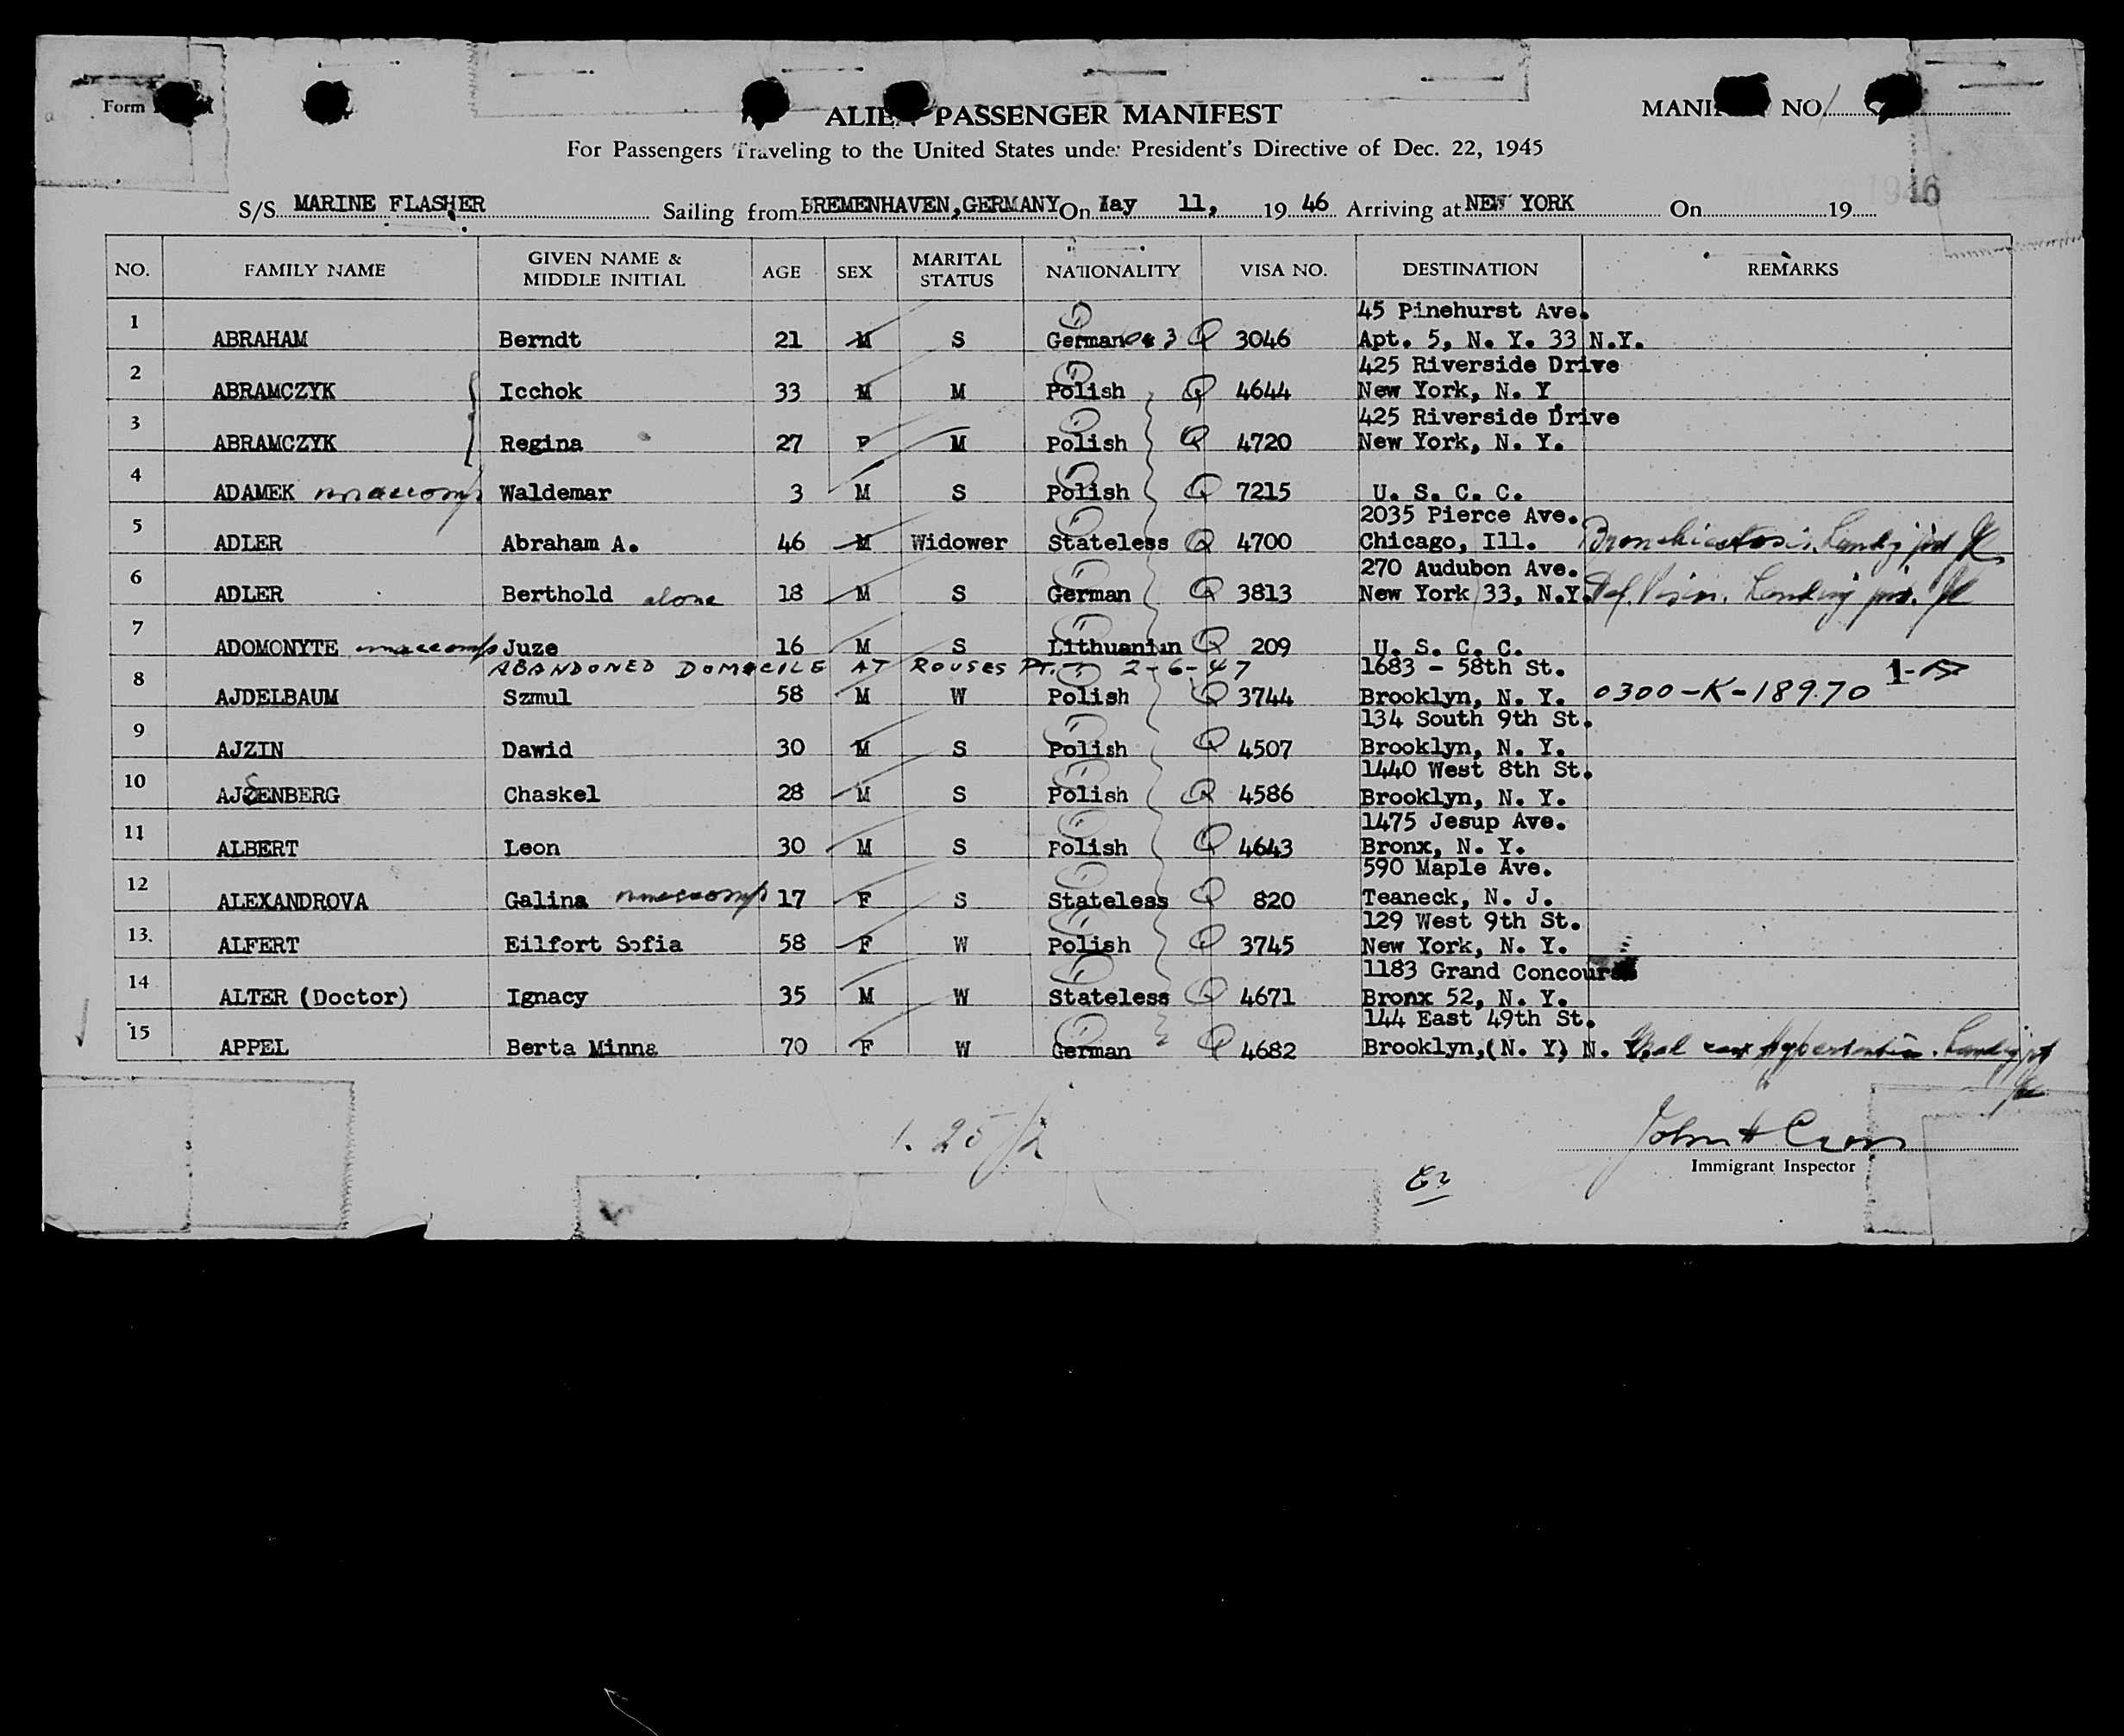 Form
ALIEN PASSENGER MANIFEST
MANI NO.
For Passengers Traveling to the United States under President's Directive of Dec. 22, 1945
S/S MARINE FLASHER Sailing from BREMENHAVEN, GERMANY On May 11, 19 46 Arriving at NEW YORK On 19
NO. FAMILY NAME GIVEN NAME & MIDDLE INITIAL AGE SEX MARITAL STATUS NATIONALITY VISA NO. DESTINATION REMARKS
45 Pinehurst Ave.
1 ABRAHAM Berndt 21 M S German 3 Q 3046 Apt. 5, N. Y. 33 N.Y.
425 Riverside Drive
2 ABRAMCZYK Icchok 33 M M Polish Q 4644 New York, N. Y.
425 Riverside Drive
3 ABRAMCZYK Regina 27 F M Polish Q 4720 New York, N. Y.
4 ADAMEK unaccomp Waldemar 3 M S Polish Q 7215 U. S. C. C.
2035 Pierce Ave.
5 ADLER Abraham A. 46 M Widower Stateless Q 4700 Chicago, Ill.
270 Audubon Ave.
6 ADLER Berthold alone 18 M S German Q 3813 New York 33, N.Y.
7 ADOMONYTE unaccomp Juze 16 M S Lithuanian Q 209 U. S. C. C.
ABANDONED DOMICILE AT ROUSES PT. 2-6-47 1683 - 58th St.
8 AJDELBAUM Szmul 58 M W Polish Q 3744 Brooklyn, N. Y. 0300-K-18970
134 South 9th St.
9 AJZIN Dawid 30 M S Polish Q 4507 Brooklyn, N. Y.
1440 West 8th St.
10 AJSENBERG Chaskel 28 M S Polish Q 4586 Brooklyn, N. Y.
1475 Jesup Ave.
11 ALBERT Leon 30 M S Polish Q 4643 Bronx, N. Y.
590 Maple Ave.
12 ALEXANDROVA Galina unaccomp 17 F S Stateless Q 820 Teaneck, N. J.
129 West 9th St.
13. ALFERT Eilfort Sofia 58 F W Polish Q 3745 New York, N. Y.
1183 Grand Concourse
14 ALTER (Doctor) Ignacy 35 M W Stateless Q 4671 Bronx 52, N. Y.
144 East 49th St.
15 APPEL Berta Minna 70 F W German Q 4682 Brooklyn, (N. Y) N. Y.
John H Cron
Immigrant Inspector